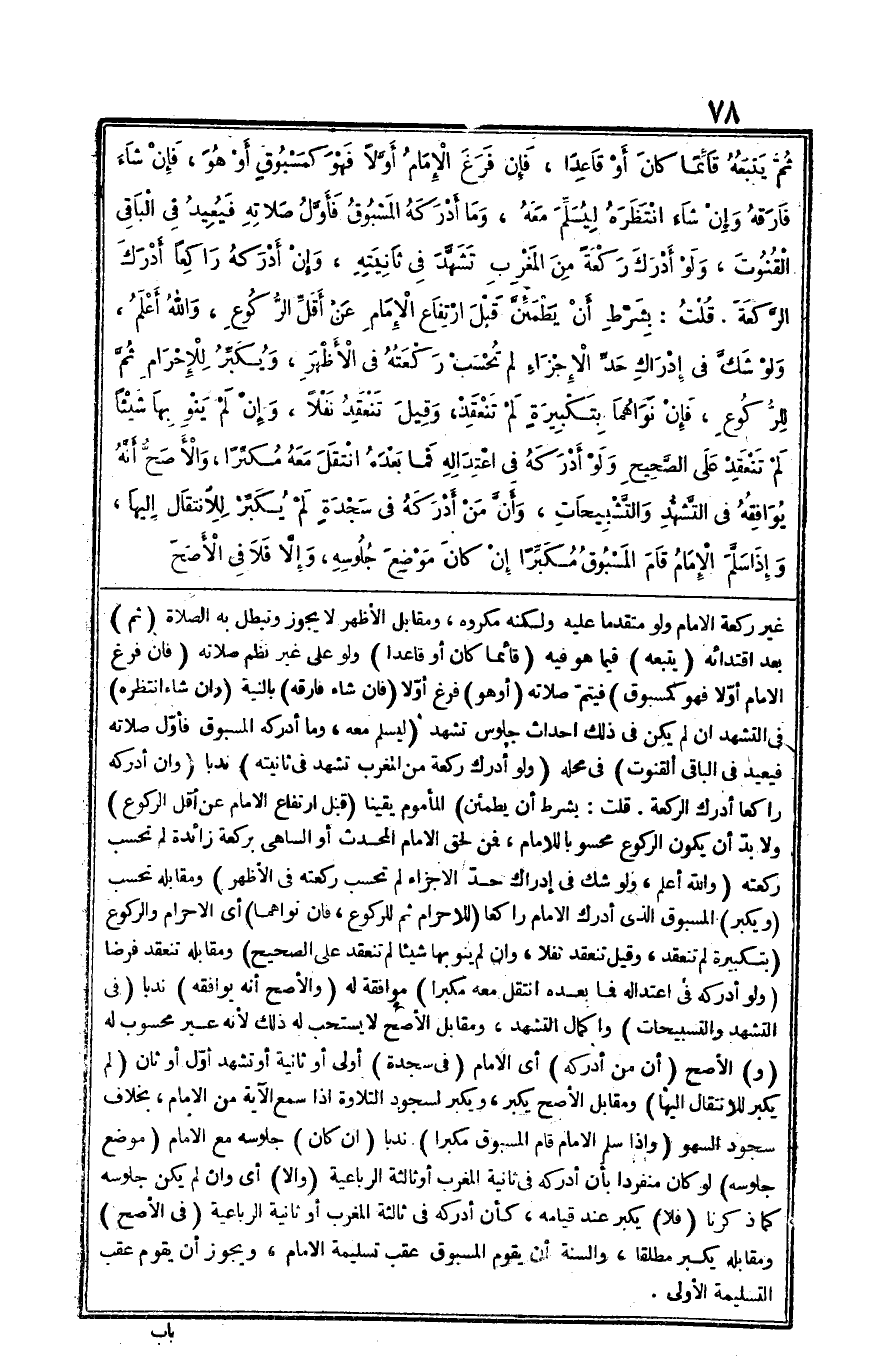 ٧٨
ثُمَّ يَتْبَعُهُ قَائِمًا كَانَ أَوْ قَاعِدًا ، فَإِن فَرَغَ الْإِمَامُ أَوَّلاً فَهْوَ كَمَسْبُوقٍ أَوْ هُوَ ، فَإِنْ شَاءَ
فَارَقَهُ وَإِنْ شَاء انْتَظَرَهُ لِيُسَلِّمَ مَعَهُ ، وَمَا أَدْرَكَهُ المَسْبُوقُ فَأَوَّلُ صَلَاتِهِ فَيُعِيدُ فِى الْبَاقِى
الْقُنُوتَ ، وَلَوْ أَدْرَكَ رَكْعَةً مِنَ المَغْرِبِ تَشَهَّدَ فِى ثَانِيَتِهِ ، وَإِنْ أَدْرَكَهُ رَاكِعاً أَدْرَكَ
الرَّكْعَةَ . قُلْتُ : بِشَرْطِ أَنْ يَطْمَئِنَّ قَبْلَ ارْتِفَاعِ الْإِمَامِ عَنْ أَقَلِّ الرُّكُوعِ ، وَاللهُ أَعْلَمُ ،
وَلَوْ شَكَّ فِى إِدْرَاكِ حَدِّ الْإِجْزَاءِ لم تُحْسَبْ رَكْعَتُهُ فى الْأَظْهَرِ ، وَيُكَبِّرُ لِلْإِحْرَامِ ثُمَّ
لِلرُّكُوعِ ، فَإِنْ نَوَاهُمَا بِتَكْبِيرَةٍ لَمْ تَنْعَقِدْ، وَقِيلَ تَنْعَقِدُ نَفْلاً ، وَإِنْ لَمْ يَنْوِ بِهَا شَيْئًا
لَمْ تَنْعَقِدْ عَلَى الصَّحِيحِ وَلَوْ أَدْرَكَهُ فِى اعْتِدَالِهِ فَمَا بَعْدَهُ انْتَقَلَ مَعَهُ مُكَبِّرًا ، وَالْأَصَحُّ أَنَّهُ
يُوَافِقُهُ فى التَّشَهُّدِ وَالتَّسْبِيحَاتِ ، وَأَنَّ مَنْ أَدْرَكَهُ فى سَجْدَةٍ لَمْ يُكَبِّرْ لِلِانْتِقَالِ إِلَيهَا ،
وَإِذَا سَلَّمَ الْإِمَامُ قَامَ المَسْبُوقُ مُكَبِّرًا إِنْ كَانَ مَوْضِعَ جُلُوسِهِ ، وَإِلَّا فَلَا فِى الْأَصَحِّ
غير ركعة الامام ولو متقدما عليه ولكنه مكروه ، ومقابل الأظهر لا يجوز وتبطل به الصلاة ( ثم )
بعد اقتدائه ( يتبعه ) فيما هو فيه ( قائما كان أو قاعدا ) ولو على غير نظم صلاته ( فان فرغ
الامام أوّلا فهو كمسبوق ) فيتمّ صلاته ( أوهو ) فرغ أوّلا ( فان شاء فارقه ) بالنية ( وان شاء انتظره )
فى التشهد ان لم يكن فى ذلك احداث جلوس تشهد ( ليسلم معه ، وما أدركه المسبوق فأوّل صلاته
فيعيد فى الباقى القنوت ) فى محله ( ولو أدرك ركعة من المغرب تشهد فى ثانيته ) ندبا ( وان أدركه
راكعا أدرك الركعة . قلت : بشرط أن يطمئن ) المأموم يقينا ( قبل ارتفاع الامام عن أقل الركوع )
ولا بدّ أن يكون الركوع محسوبا للامام ، فمن لحق الامام المحدث أو الساهى بركعة زائدة لم تحسب
ركعته ( والله أعلم ، ولو شك فى إدراك حدّ الاجزاء لم تحسب ركعته فى الأظهر ) ومقابله تحسب
( ويكبر ) المسبوق الذى أدرك الامام راكعا ( للاحرام ثم للركوع ، فان نواهما ) أى الاحرام والركوع
( بتكبيرة لم تنعقد ، وقيل تنعقد نفلا ، وان لم ينو بها شيئا لم تنعقد على الصحيح ) ومقابله تنعقد فرضا
( ولو أدركه فى اعتداله فما بعده انتقل معه مكبرا ) موافقة له ( والأصح أنه يوافقه ) ندبا ( فى
التشهد والتسبيحات ) واكمال التشهد ، ومقابل الأصح لا يستحب له ذلك لأنه غير محسوب له
( و ) الأصح ( أن من أدركه ) أى الامام ( فى سجدة ) أولى أو ثانية أو تشهد أوّل أو ثان ( لم
يكبر للانتقال اليها ) ومقابل الأصح يكبر ، ويكبر لسجود التلاوة اذا سمع الآية من الامام ، بخلاف
سجود السهو ( واذا سلم الامام قام المسبوق مكبرا ) ندبا ( ان كان ) جلوسه مع الامام ( موضع
جلوسه ) لو كان منفردا بأن أدركه فى ثانية المغرب أو ثالثة الرباعية ( والا ) أى وان لم يكن جلوسه
كما ذكرنا ( فلا ) يكبر عند قيامه ، كأن أدركه فى ثالثة المغرب أو ثانية الرباعية ( فى الأصح )
ومقابله يكبر مطلقا ، والسنة أن يقوم المسبوق عقب تسليمة الامام ، ويجوز أن يقوم عقب
التسليمة الأولى .
باب